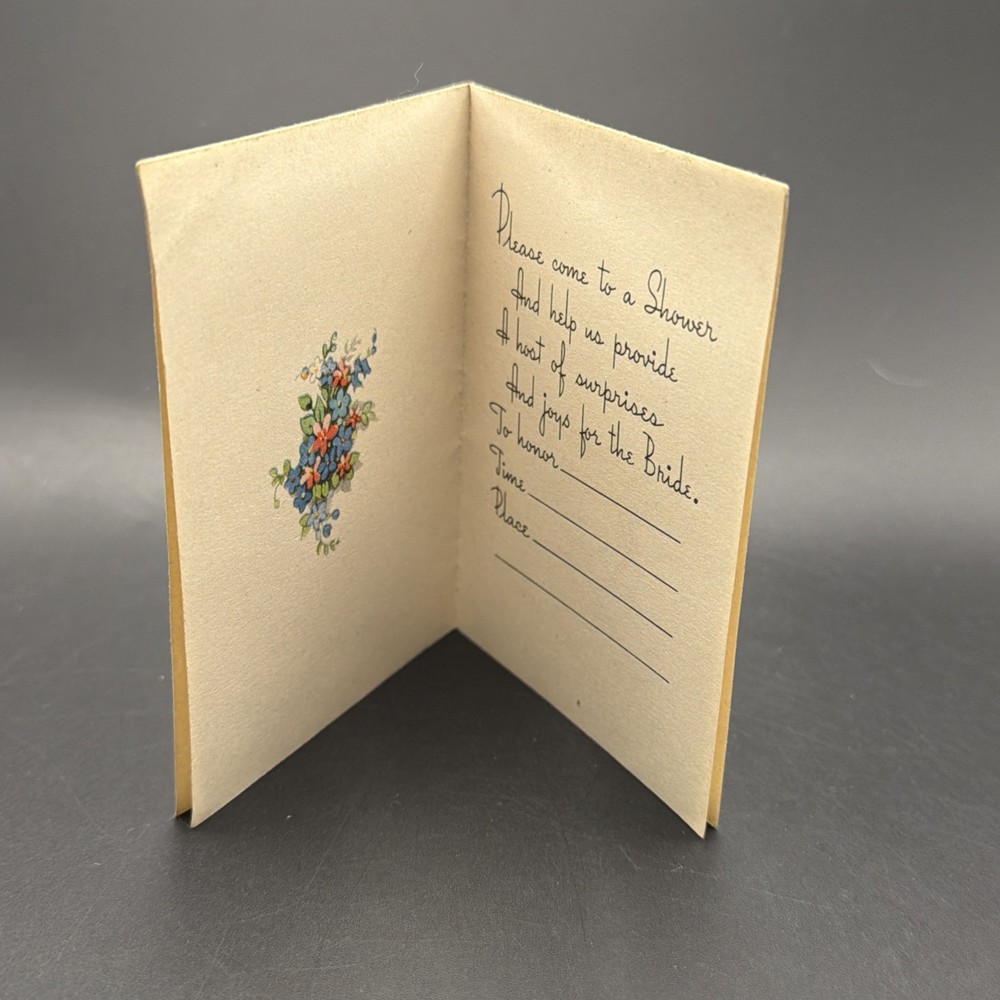 Please come to a Shower
And help us provide
A host of surprises
And joys for the Bride.
To honor
Time
Place